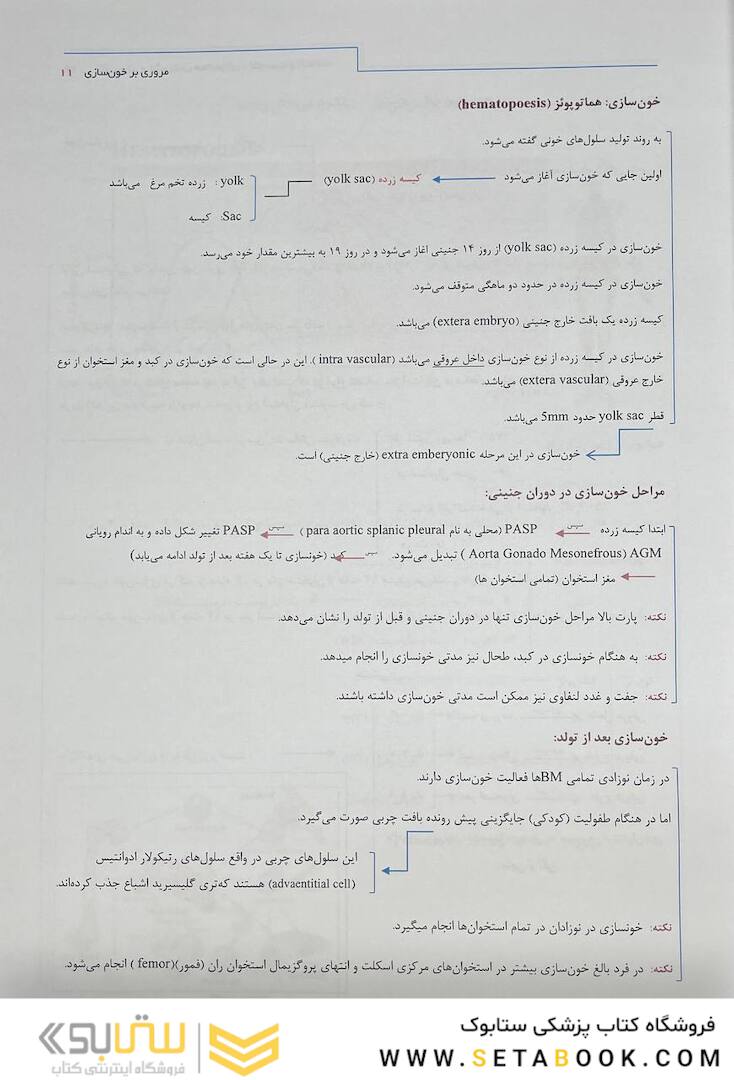 مروری بر خون‌سازی ۱۱
خون‌سازی: هماتوپوئز (hematopoesis)
به روند تولید سلول‌های خونی گفته می‌شود.
اولین جایی که خون‌سازی آغاز می‌شود کیسه زرده (yolk sac) yolk : زرده تخم مرغ می‌باشد
Sac: کیسه
خون‌سازی در کیسه زرده (yolk sac) از روز ۱۴ جنینی اغاز می‌شود و در روز ۱۹ به بیشترین مقدار خود می‌رسد.
خون‌سازی در کیسه زرده در حدود دو ماهگی متوقف می‌شود.
کیسه زرده یک بافت خارج جنینی (extera embryo) می‌باشد.
خون‌سازی در کیسه زرده از نوع خون‌سازی داخل عروقی می‌باشد (intra vascular ). این در حالی است که خون‌سازی در کبد و مغز استخوان از نوع
خارج عروقی (extera vascular) می‌باشد.
قطر yolk sac حدود 5mm می‌باشد.
خون‌سازی در این مرحله extra emberyonic (خارج جنینی) است.
مراحل خون‌سازی در دوران جنینی:
ابتدا کیسه زرده سپس PASP (محلی به نام para aortic splanic pleural ) سپس PASP تغییر شکل داده و به اندام رویانی
AGM (Aorta Gonado Mesonefrous ) تبدیل می‌شود. سپس کبد (خونسازی تا یک هفته بعد از تولد ادامه می‌یابد)
مغز استخوان (تمامی استخوان ها)
نکته: پارت بالا مراحل خون‌سازی تنها در دوران جنینی و قبل از تولد را نشان می‌دهد.
نکته: به هنگام خونسازی در کبد، طحال نیز مدتی خونسازی را انجام میدهد.
نکته: جفت و غدد لنفاوی نیز ممکن است مدتی خون‌سازی داشته باشند.
خون‌سازی بعد از تولد:
در زمان نوزادی تمامی BMها فعالیت خون‌سازی دارند.
اما در هنگام طفولیت (کودکی) جایگزینی پیش رونده بافت چربی صورت می‌گیرد.
این سلول‌های چربی در واقع سلول‌های رتیکولار ادوانتیس
(advaentitial cell) هستند که‌تری گلیسیرید اشباع جذب کرده‌اند.
نکته: خونسازی در نوزادان در تمام استخوان‌ها انجام میگیرد.
نکته: در فرد بالغ خون‌سازی بیشتر در استخوان‌های مرکزی اسکلت و انتهای پروگزیمال استخوان ران (فمور)(femor ) انجام می‌شود.
فروشگاه کتاب پزشکی ستابوک
WWW.SETABOOK.COM
ستابوک
فروشگاه اینترنتی کتاب